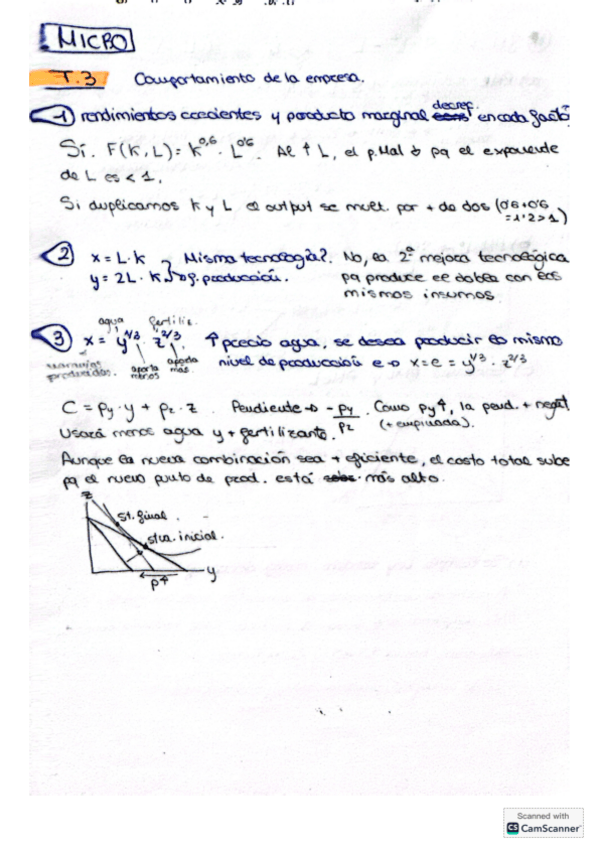 MICRO
T.3 Comportamiento de la empresa.
1 rendimientos crecientes y producto marginal decrec. en cada factor
Sí. F(K,L) = K^0,6 · L^0,6. Al ↑ L, el p.Mal ↓ pq el exponente
de L es < 1.
Si duplicamos K y L el output se mult. por + de dos (0'6+0'6
=1'2>1)
2 x = L·K Misma tecnología?. No, la 2ª mejora tecnológica
y = 2L·K f. producción. pq produce el doble con los
mismos insumos.
agua fertiliz.
3 x = y^1/3 · z^2/3. ↑ precio agua, se desea producir lo mismo
naranjas producidas. aporta menos aporta más. nivel de producción x=c = y^1/3 · z^2/3
C = Py·y + Pz·z. Pendiente → -Py/Pz. Como Py↑, la pend. + negat
Usará menos agua y + fertilizante. (+ empinada).
Aunque la nueva combinación sea + eficiente, el costo total sube
pq el nuevo punto de prod. está más alto.
z
st. final.
stua. inicial.
y
p↑
Scanned with
CS CamScanner